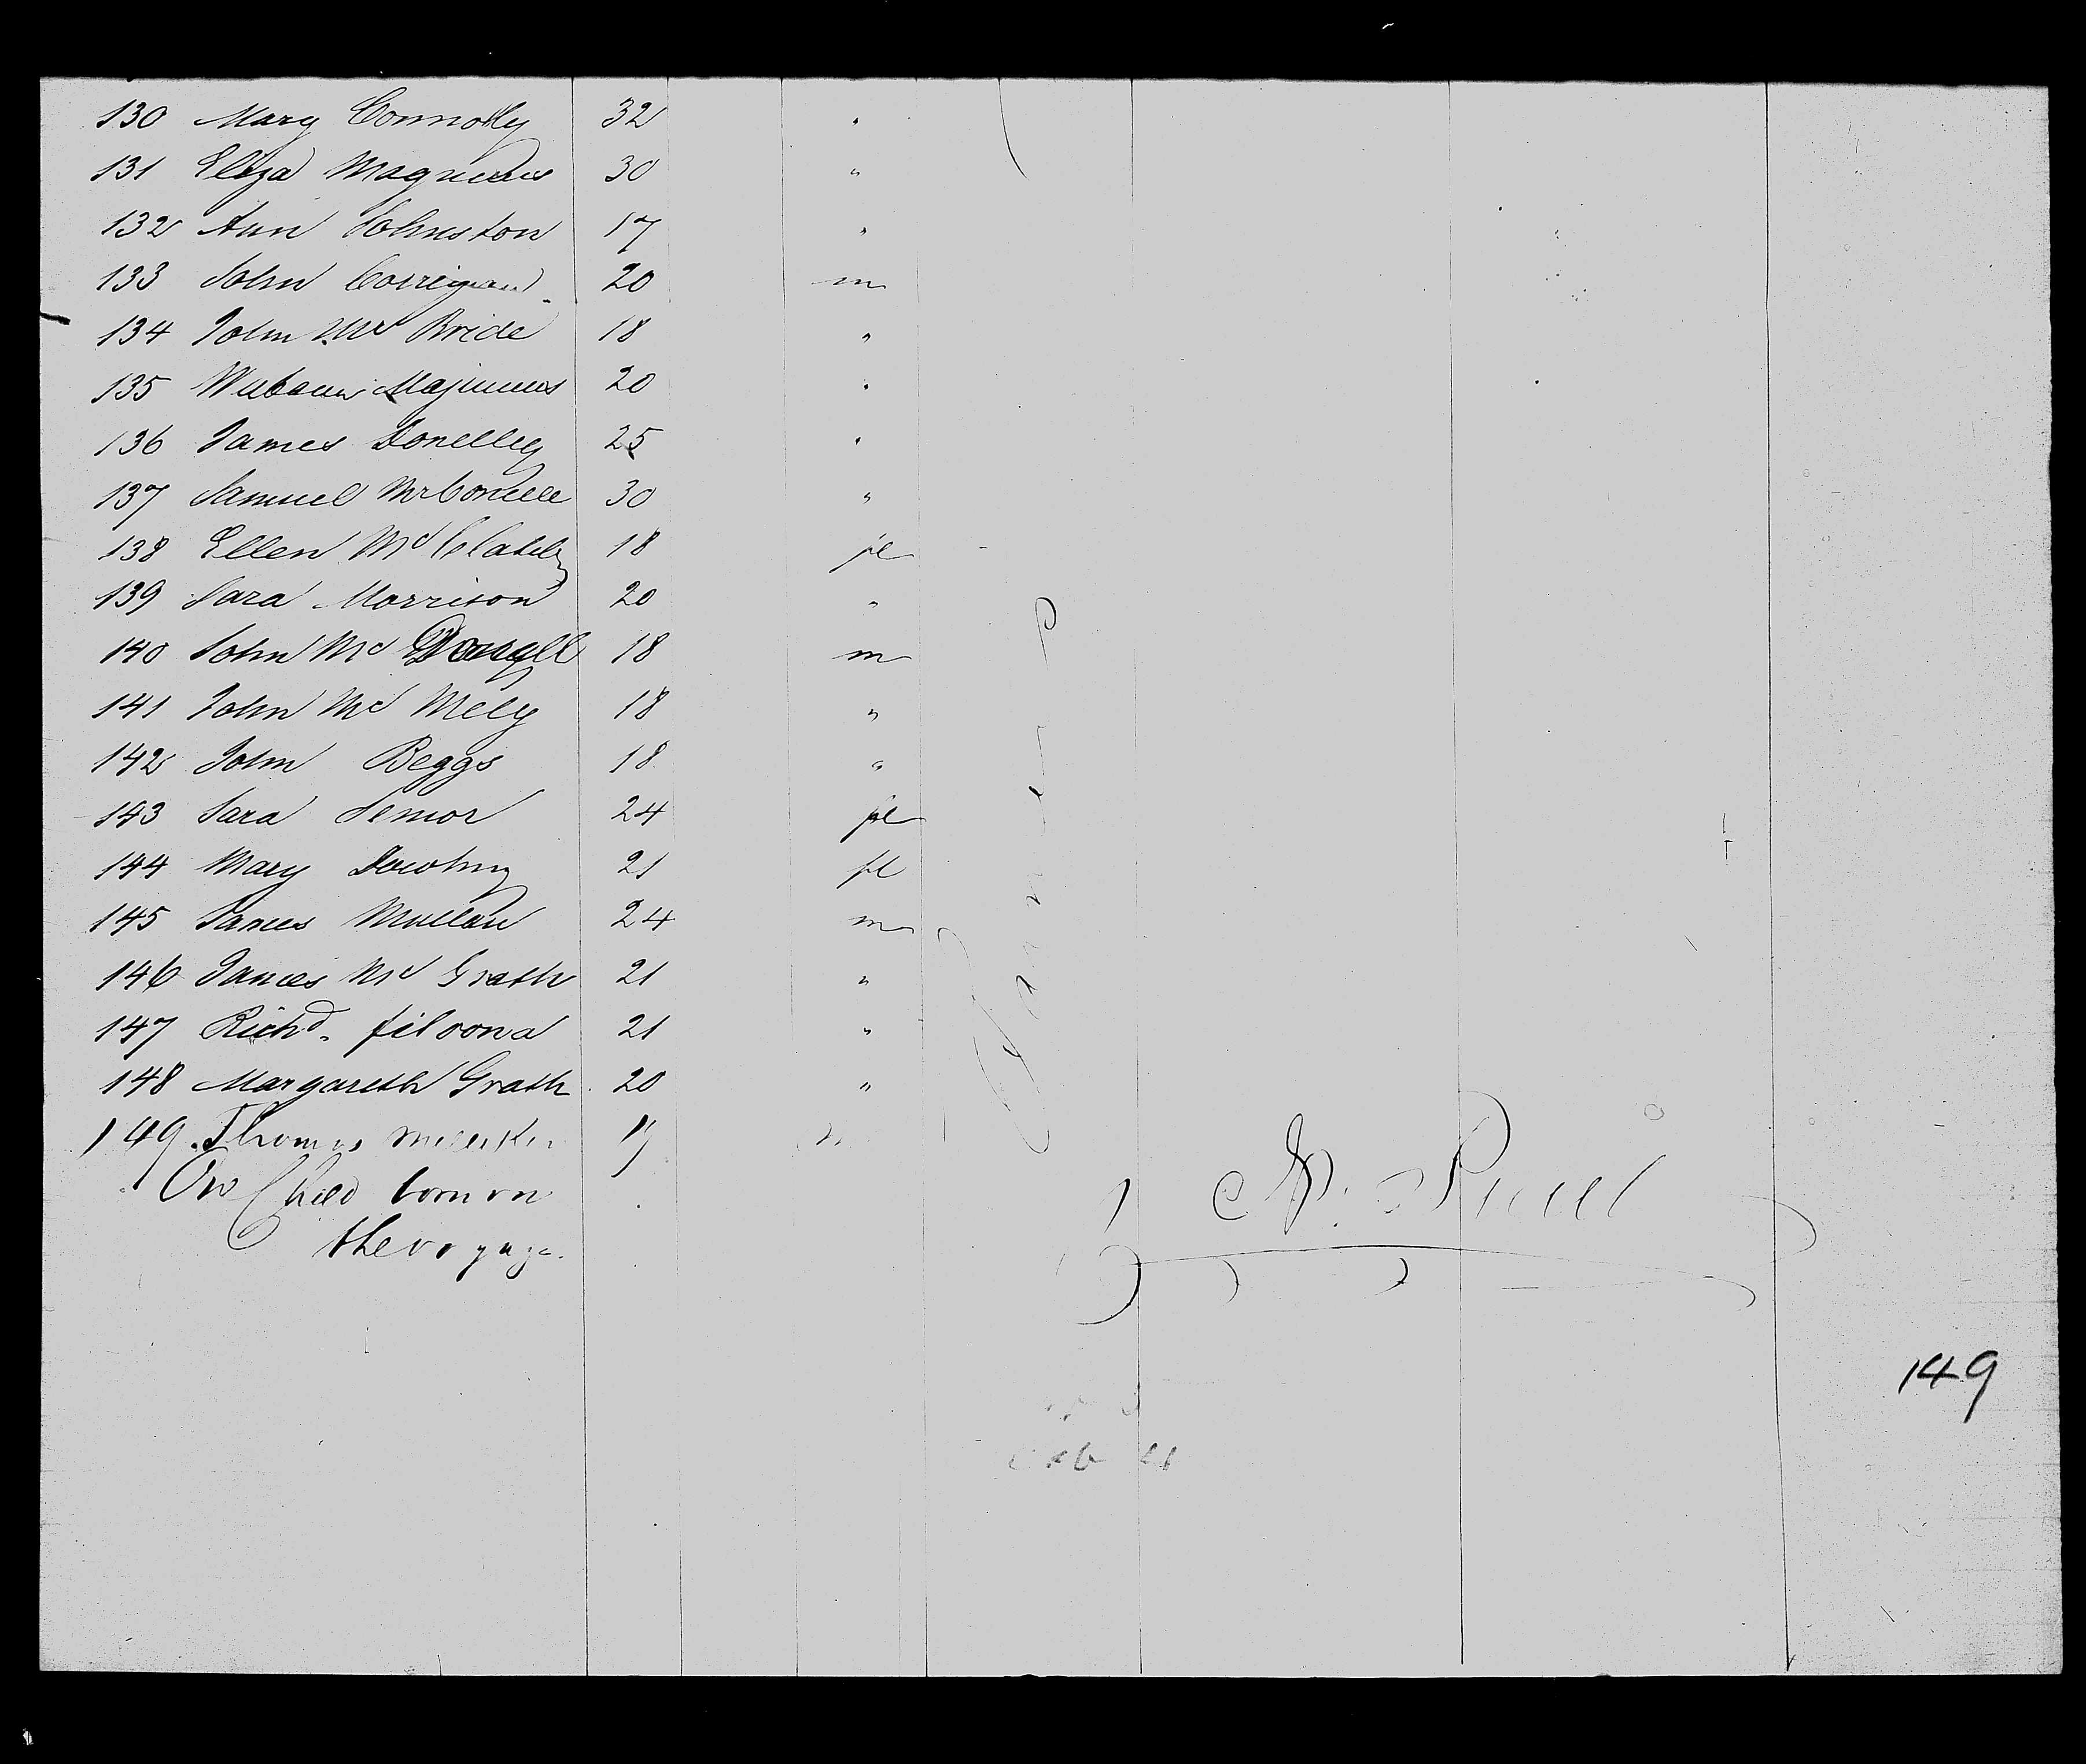 130 Mary Connolly 32 "
131 Eliza Maginnis 30 "
132 Ann Johnston 17 "
133 John Corrigan 20 m
134 John Mc Bride 18 "
135 20 "
136 James Donelley 25 "
137 Samuel 30 "
138 Ellen Mc 18 fe
139 Sara Morrison 20 "
140 John Mc 18 m
141 John Mc Mely 18 "
142 John Beggs 18 "
143 Sara Semor 24 fe
144 Mary Dowling 21 fe
145 James Mullan 24 m
146 James Mc Grath 21 "
147 Richd. filoona 21 "
148 Margareth Grath 20 "
149 Thomas 19
One Child born on
the voyage.
Farmers
149